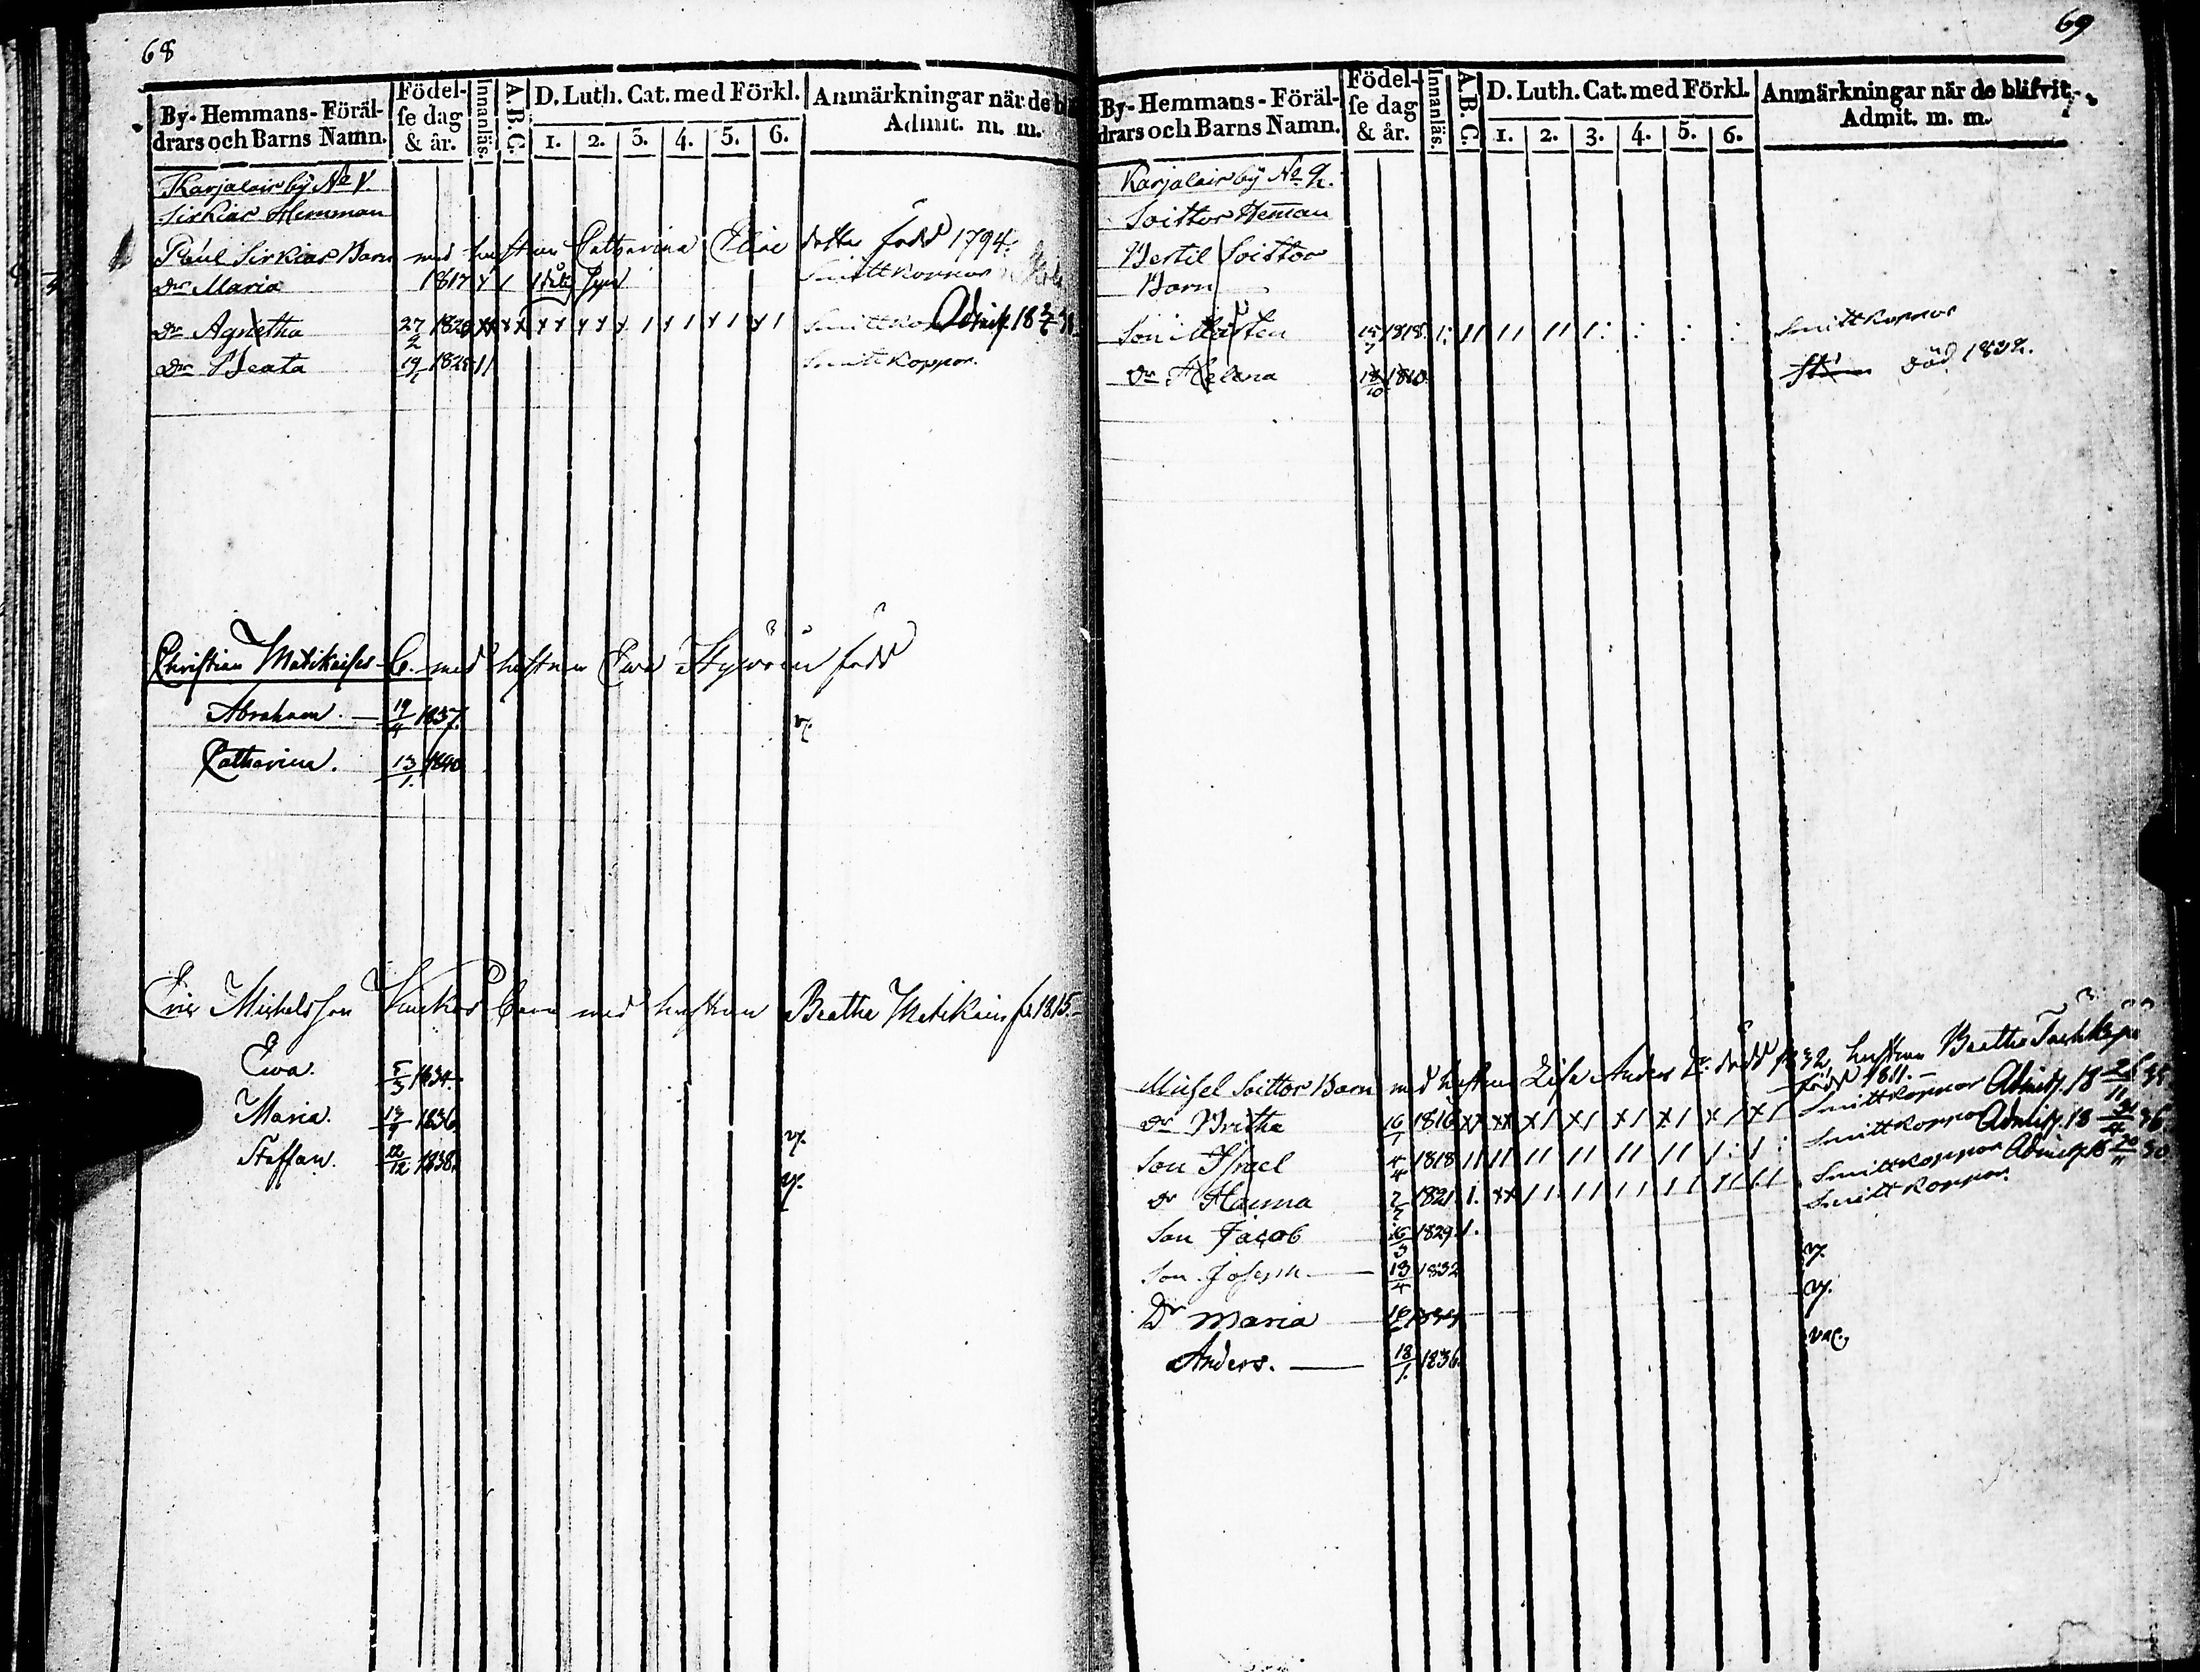 68
By- Hemmans- Föräl-
drars och Barns Namn.
Födel-
se dag
& år.
Innanläs.
A. B. C.
D. Luth. Cat. med Förkl.
1. 2. 3. 4. 5. 6.
Anmärkningar när de
Admit. m. m.
Karjalain bÿ No 1.
Sirkiär Hemman
Paul Sirkiäs Barn med hustrun Catharina Eliae dotter född 1794.
Dr Maria 1817 Smittkoppor
Dr Agnetha 27/2 1820 Admitt. 18
Dr Beata 19/1 1828 Smittkoppor.
Christian Matikaises B. med hustrun Ewa Hyvöin född
Abraham. 19/4 1837. v.
Catharina. 13/1. 1840
Eric Michelsson Barn med hustrun Beatha Matikain f. 1815.
Ewa. 5/3 1834.
Maria. 1836 v.
Staffan. 22/12 1838. v.
69
By- Hemmans- Föräl-
drars och Barns Namn.
Födel-
se dag
& år.
Innanläs.
A. B. C.
D. Luth. Cat. med Förkl.
1. 2. 3. 4. 5. 6.
Anmärkningar när de blifvit
Admit. m. m.
Karjalain bÿ No 2.
Soittos Heman
Bertil Soittos
Barn
Son Mårten 15/7 1818 Smittkoppor
Dr Helena 18/10 1810 död 1832.
Michel Soittos Barn med hustrun Lisa Anders Dr. död 1832, hustrun Beatha
född 1811.
Dr Britha 16/1 1816 Smittkoppor Admitt. 18 26/11 35
Son Israel 4/4 1818 Smittkoppor Admitt. 18 36
Dr Hanna 2/2 1821 Smittkoppor Admitt. 18
Son Jacob 16/3 1829 Smittkoppor.
Son Joseph 13/4 1832 v.
Dr Maria v.
Anders. 18/1. 1836 vac.